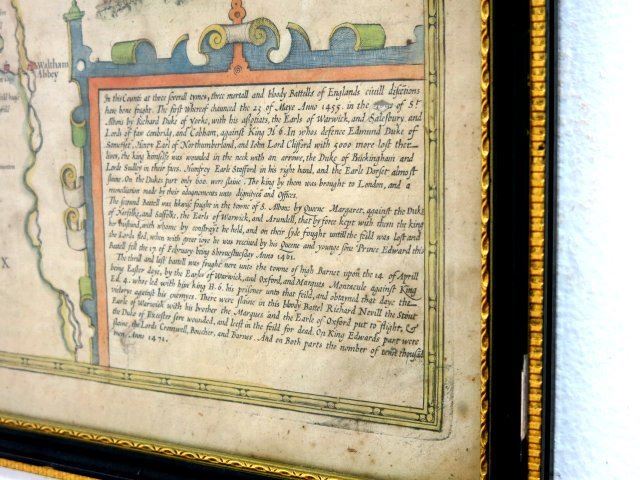 Waltham
Abbey
In this Counti at three severall tymes, three mortall and blody Battells of Englands civill disections
have bene fraught. The first whereof chaunced the 23 of Maye Anno 1455. in the of St
Albons by Richard Duke of Yorke, with his assotiats, the Earles of Warwick, and Salesbury, and
Lords of Cobham, against King H. 6. In whos defence Edmund Duke of
Somerset, Henry Earl of Northumberland, and John Lord Clifford with 5000 more lost ther
lives, the king himselfe was wounded in the neck with an arrowe, the Duke of Buckingham and
Lorde Sudley in their faces. Humfrey Earle Stafford in his right hand, and the Earle Dorset almost
slaine. On the Dukes part only 600. were slaine. The king by them was brought to London, and a
reconciliation made by their
The second Battell was likwise fought in the towne of S. Albons by Queene Margaret, against the Duke
of Norfolke, and Suffolke, the Earls of Warwick, and Arundell, that by force kept with them the king
her husband, with whome by constraynt he held, and on their syde fought untill the feild was lost and
the Lords fled, when with great ioye he was received by his Queene and younge sone Prince Edward this
Battell fell the 17 of February being Shrovetuesday Anno 1461.
The third and last battell was fought nere unto the towne of high Barnet upon the 14. of Aprill
being Easter daye, by the Earles of Warwick, and Oxford, and Marques Montacute against King
Ed. 4. who led with him king H. 6. his prisoner unto that feild, and obtayned that daye the
victorye against his enemyes. There were slaine in this bloody Battel Richard Nevill the Stout
Earle of Warwick with his brother the Marques and the Earle of Oxford put to flight, &
the Duke of Excester sore wounded, and left in the feild for dead. On King Edwards part were
slaine, the Lords Cromwell, Bouchier, and Barnes. And on Both parts the number of tenne thousad
men. Anno 1471.
X